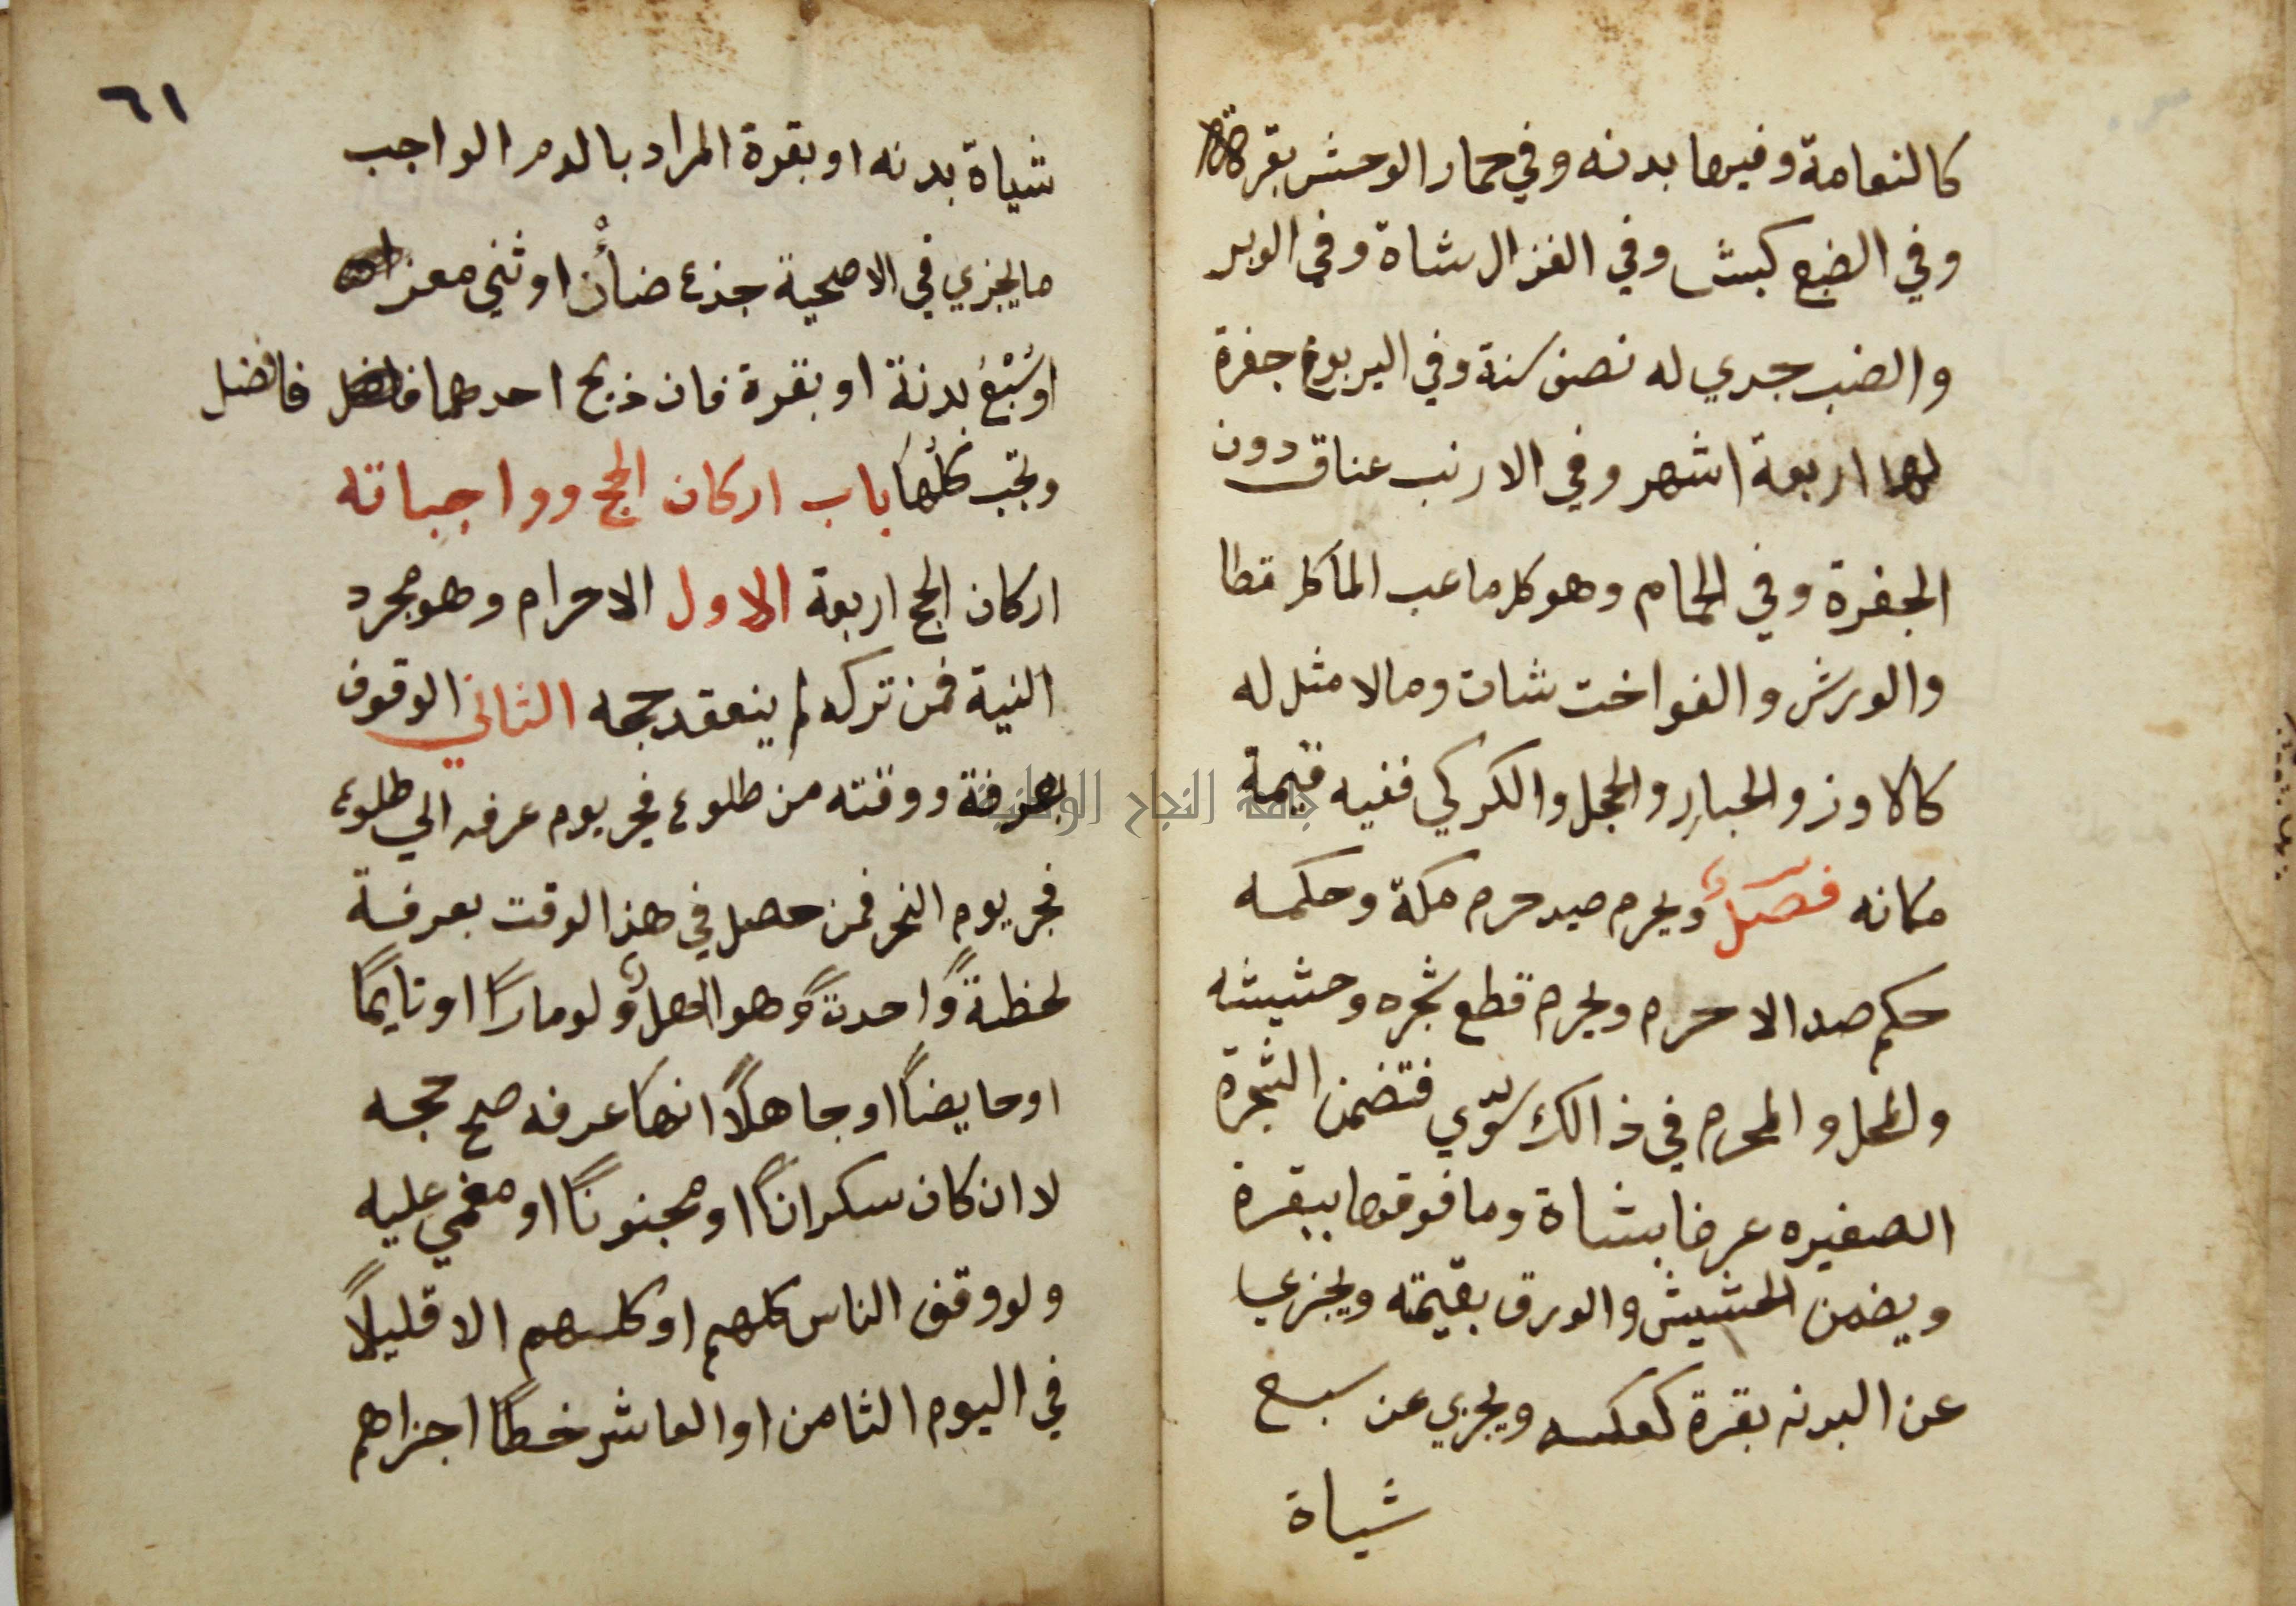 كالنعامة وفيها بدنه وفي حمار الوحش بقرة
وفي الضبع كبش وفي الغزال شاة وفي الوبر
والضب جدي له نصف سنة وفي اليربوع جفرة
لها اربعة اشهر وفي الارنب عناق دون
الجفرة وفي الحمام وهو كلما عب الما كلـ قطا
والورش والفواخت شات ومالا مثل له
كالاوز والحبار والحجل والكركي ففيه قيمة
مكانه فصل ويحرم صيد حرم مكة وحكمه
حكم صد الاحرم ويحرم قطع شجره وحشيشه
والمحل والمحرم في ذالك سوي فتضمن الشجرة
الصغيره عرفا بشاة وما فوقها ببقرة
ويضمن الحشيش والورق بقيمته ويجزي
عن البدنه بقرة كعكسه ويجزي عن سبع
شياة
٦١
شياة بدنه او بقرة المراد بالدم الواجب
ما يجزي في الاضحية جذع ضأن او ثني معز
او سُبْعُ بدنة او بقرة فان ذبح احدهما فافضل
وتجب كلُها باب اركان الحج وواجباته
اركان الحج اربعة الاول الاحرام وهو مجرد
النية فمن تركه لم ينعقد حجه الثاني الوقوف
بعرفة ووقته من طلوع فجر يوم عرفه الي طلوع
فجر يوم النحر فمن حصل في هذا الوقت بعرفة
لحظةً واحدتً وهو اهلٌ ولو مارًا او نايمًا
او حايضًا او جاهلاً انها عرفه صح حجه
لا ان كان سكرانًا او مجنونًا او مغمي عليه
ولو وقف الناس كلهم او كلهم الا قليلاً
في اليوم الثامن او العاشر خطًا اجزاهم
جامعة النجاح الوطنية